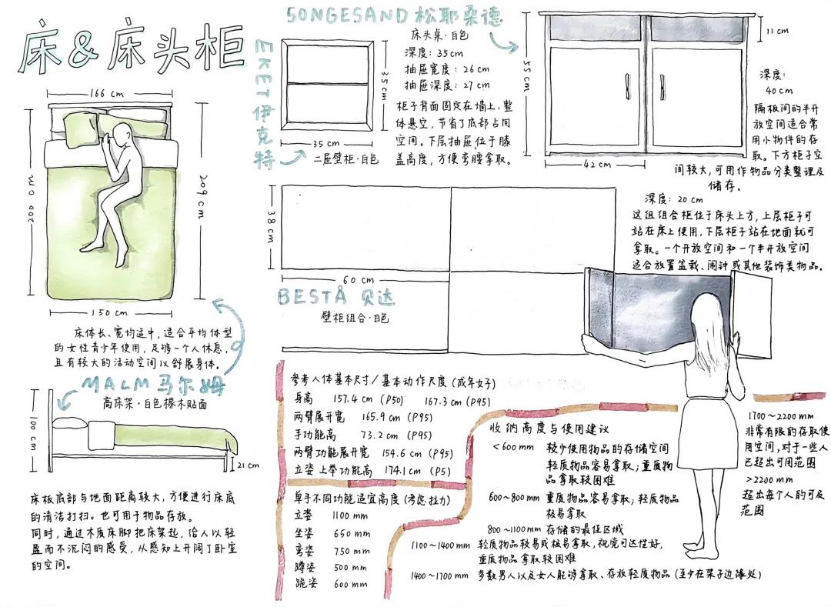 床&床头柜
166 cm
200 cm
209 cm
150 cm
床体长、宽均适中，适合平均体型
的女性青少年使用，足够一个人休息，
且有较大的活动空间以舒展身体。
MALM 马尔姆
高床架·白色橡木贴面
100 cm
21 cm
床板底部与地面距离较大，方便进行床底
的清洁打扫。也可用于物品存放。
同时，通过木质床脚把床架起，给人以轻
盈而不沉闷的感受，从感知上开阔了卧室
的空间。
SONGESAND 松耶桑德
床头桌·白色
EKET 伊克特
35 cm
35 cm
二层壁柜·白色
深度：35 cm
抽屉宽度：26 cm
抽屉深度：27 cm
柜子背面固定在墙上，整
体悬空，节省了底部占用
空间。下层抽屉位于膝
盖高度，方便弯腰拿取。
55 cm
11 cm
42 cm
深度：
40 cm
隔板间的半开
放空间适合常
用小物件的存
取。下方柜子空
间较大，可用作物品分类整理及
储存。
深度：20 cm
这组组合柜位于床头上方，上层柜子可
站在床上使用，下层柜子站在地面就可
拿取。一个开放空间和一个半开放空间
适合放置盆栽、闹钟或其他装饰类物品。
38 cm
60 cm
BESTÅ 贝达
壁柜组合·白色
参考人体基本尺寸/基本动作尺度（成年女子）
身高 157.4 cm (P50) 167.3 cm (P95)
两臂展开宽 165.9 cm (P95)
手功能高 73.2 cm (P95)
两臂功能展开宽 154.6 cm (P95)
立姿上举功能高 174.1 cm (P5)
单手不同功能适宜高度（考虑拉力）
立姿 1100 mm
坐姿 650 mm
弯姿 750 mm
蹲姿 500 mm
跪姿 600 mm
收纳高度与使用建议
<600 mm 较少使用物品的存储空间
轻质物品容易拿取；重质物
品拿取较困难
600~800 mm 重质物品容易拿取；轻质物品
极易拿取
800~1100 mm 存储的最佳区域
1100~1400 mm 轻质物品较易或极易拿取，视觉可达性好，
重质物品拿取较困难
1400~1700 mm 多数男人以及女人能够拿取、存放轻质物品（至少在架子边缘处）
1700~2200 mm
非常有限的存取使
用空间，对于一些人
已超出可用范围
>2200 mm
超出每个人的可及
范围